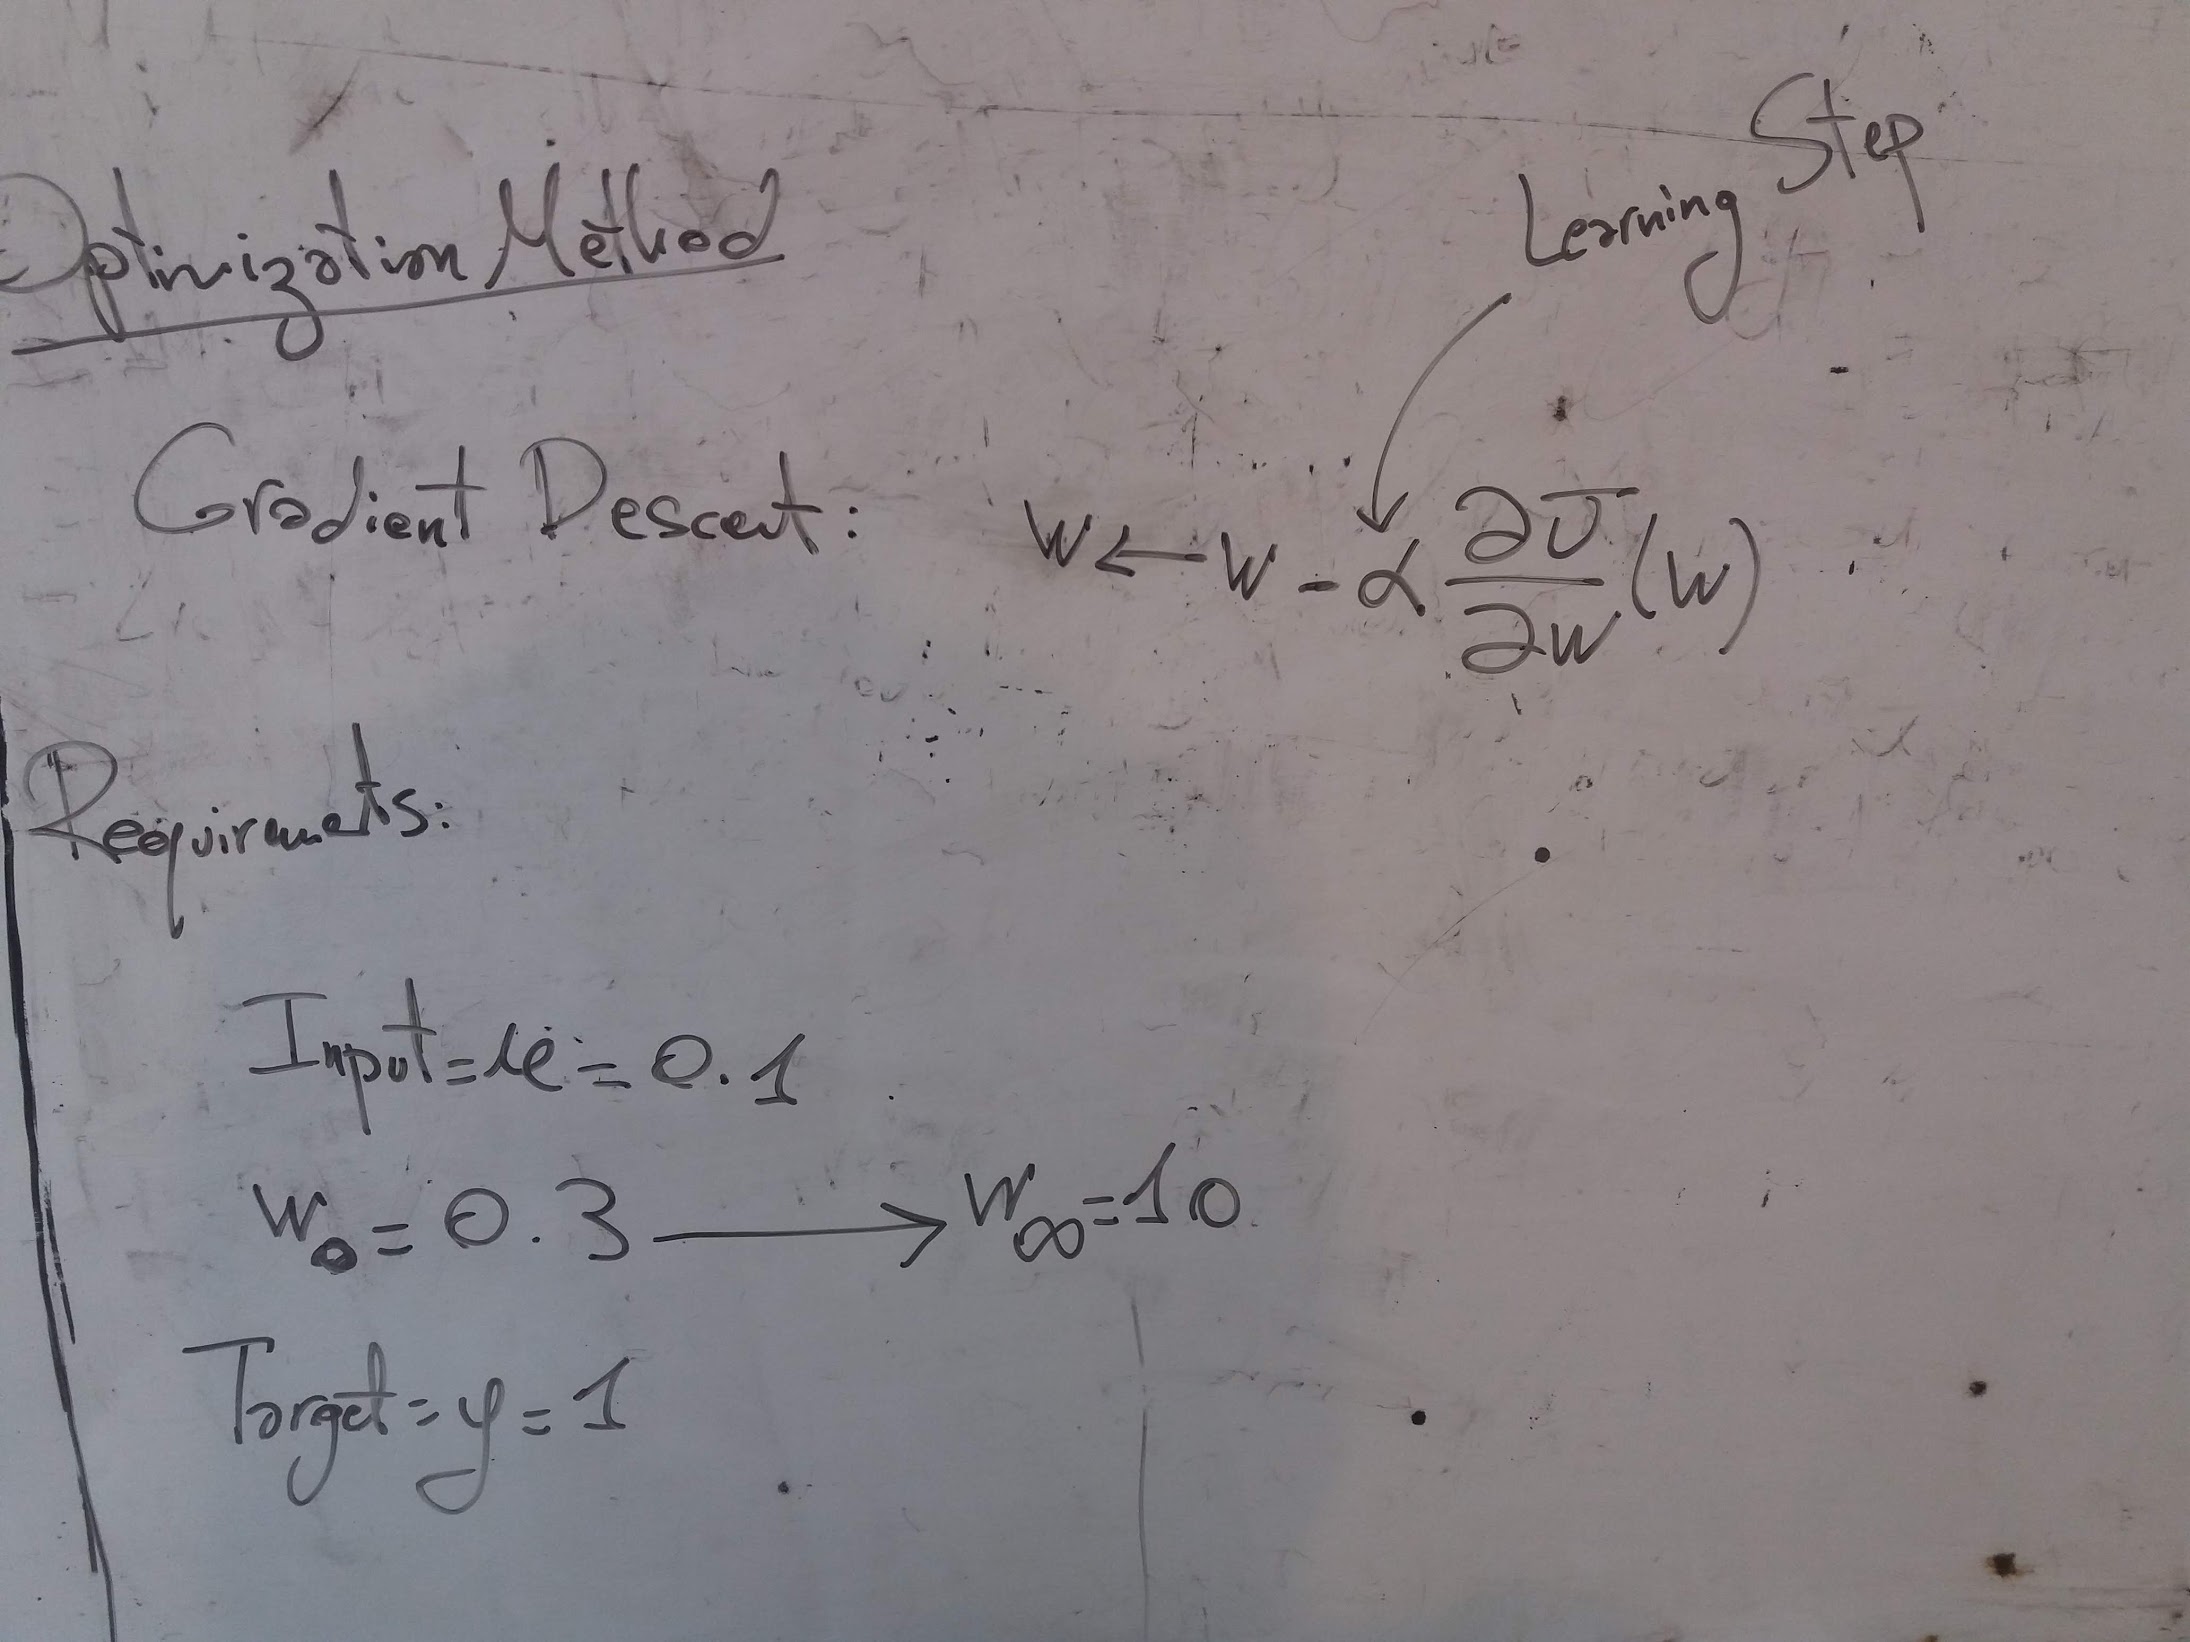 Optimization Method
Learning Step
Gradient Descent: w ← w - α ∂J/∂w (w)
Requirements:
Input = x = 0.1
w₀ = 0.3 → w∞ = 10
Target = y = 1